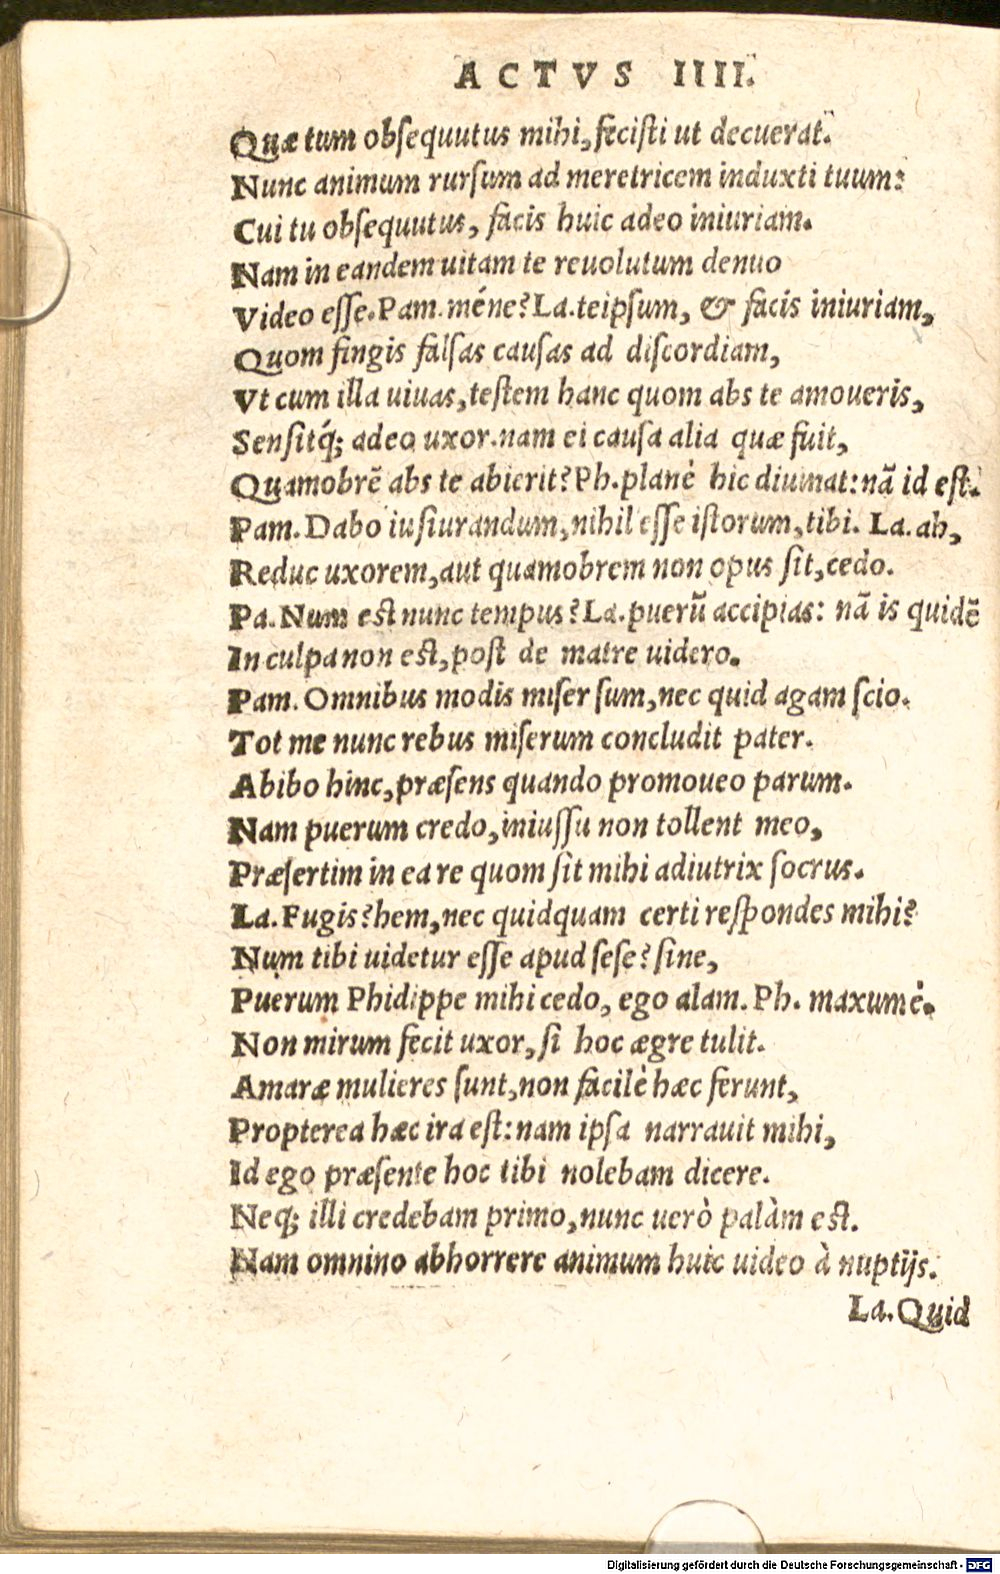 ACTVS IIII.
Quæ tum obsequutus mihi, fecisti ut decuerat.
Nunc animum rursum ad meretricem induxti tuum:
Cui tu obsequutus, facis huic adeo iniuriam.
Nam in eandem uitam te reuolutum denuo
Video esse. Pam. méne? La. teipsum, & facis iniuriam,
Quom fingis falsas causas ad discordiam,
Vt cum illa uiuas, testem hanc quom abs te amoueris,
Sensitq́; adeo uxor. nam ei causa alia quæ fuit,
Quamobrē abs te abierit? Ph. planè hic diuinat: nā id est.
Pam. Dabo iusiurandum, nihil esse istorum, tibi. La. ah,
Reduc uxorem, aut quamobrem non opus sit, cedo.
Pa. Num est nunc tempus? La. puerū accipias: nā is quidē
In culpa non est, post de matre uidero.
Pam. Omnibus modis miser sum, nec quid agam scio.
Tot me nunc rebus miserum concludit pater.
Abibo hinc, præsens quando promoueo parum.
Nam puerum credo, iniussu non tollent meo,
Præsertim in ea re quom sit mihi adiutrix socrus.
La. Fugis? hem, nec quidquam certi respondes mihi?
Num tibi uidetur esse apud sese? sine,
Puerum Phidippe mihi cedo, ego alam. Ph. maxumè.
Non mirum fecit uxor, si hoc ægre tulit.
Amaræ mulieres sunt, non facilè hæc ferunt,
Propterea hæc ira est: nam ipsa narrauit mihi,
Id ego præsente hoc tibi nolebam dicere.
Neq; illi credebam primo, nunc uerò palàm est.
Nam omnino abhorrere animum huic uideo à nuptijs.
La. Quid
Digitalisierung gefördert durch die Deutsche Forschungsgemeinschaft - DFG